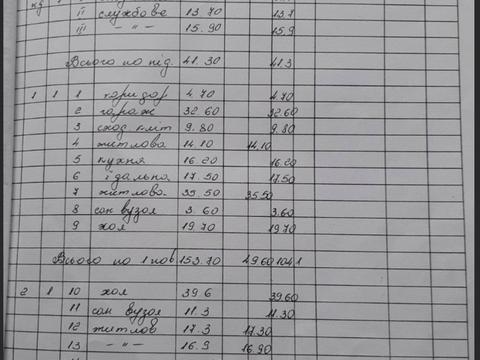 II службове 13.70 13.7
III -"- 15.90 15.9
Всього по під. 41.30 41.3
1 1 1 коридор 4.70 4.70
2 гараж 32.60 32.60
3 сход. кліт 9.80 9.80
4 житлова 14.10 14.10
5 кухня 16.20 16.20
6 їдальня 17.50 17.50
7 житлова 35.50 35.50
8 сан вузол 3.60 3.60
9 хол 19.70 19.70
Всього по 1 пов 153.70 49.60 104.1
2 1 10 хол 39.6 39.60
11 сан вузол 11.3 11.30
12 житлов 17.3 17.30
13 -"- 16.9 16.90